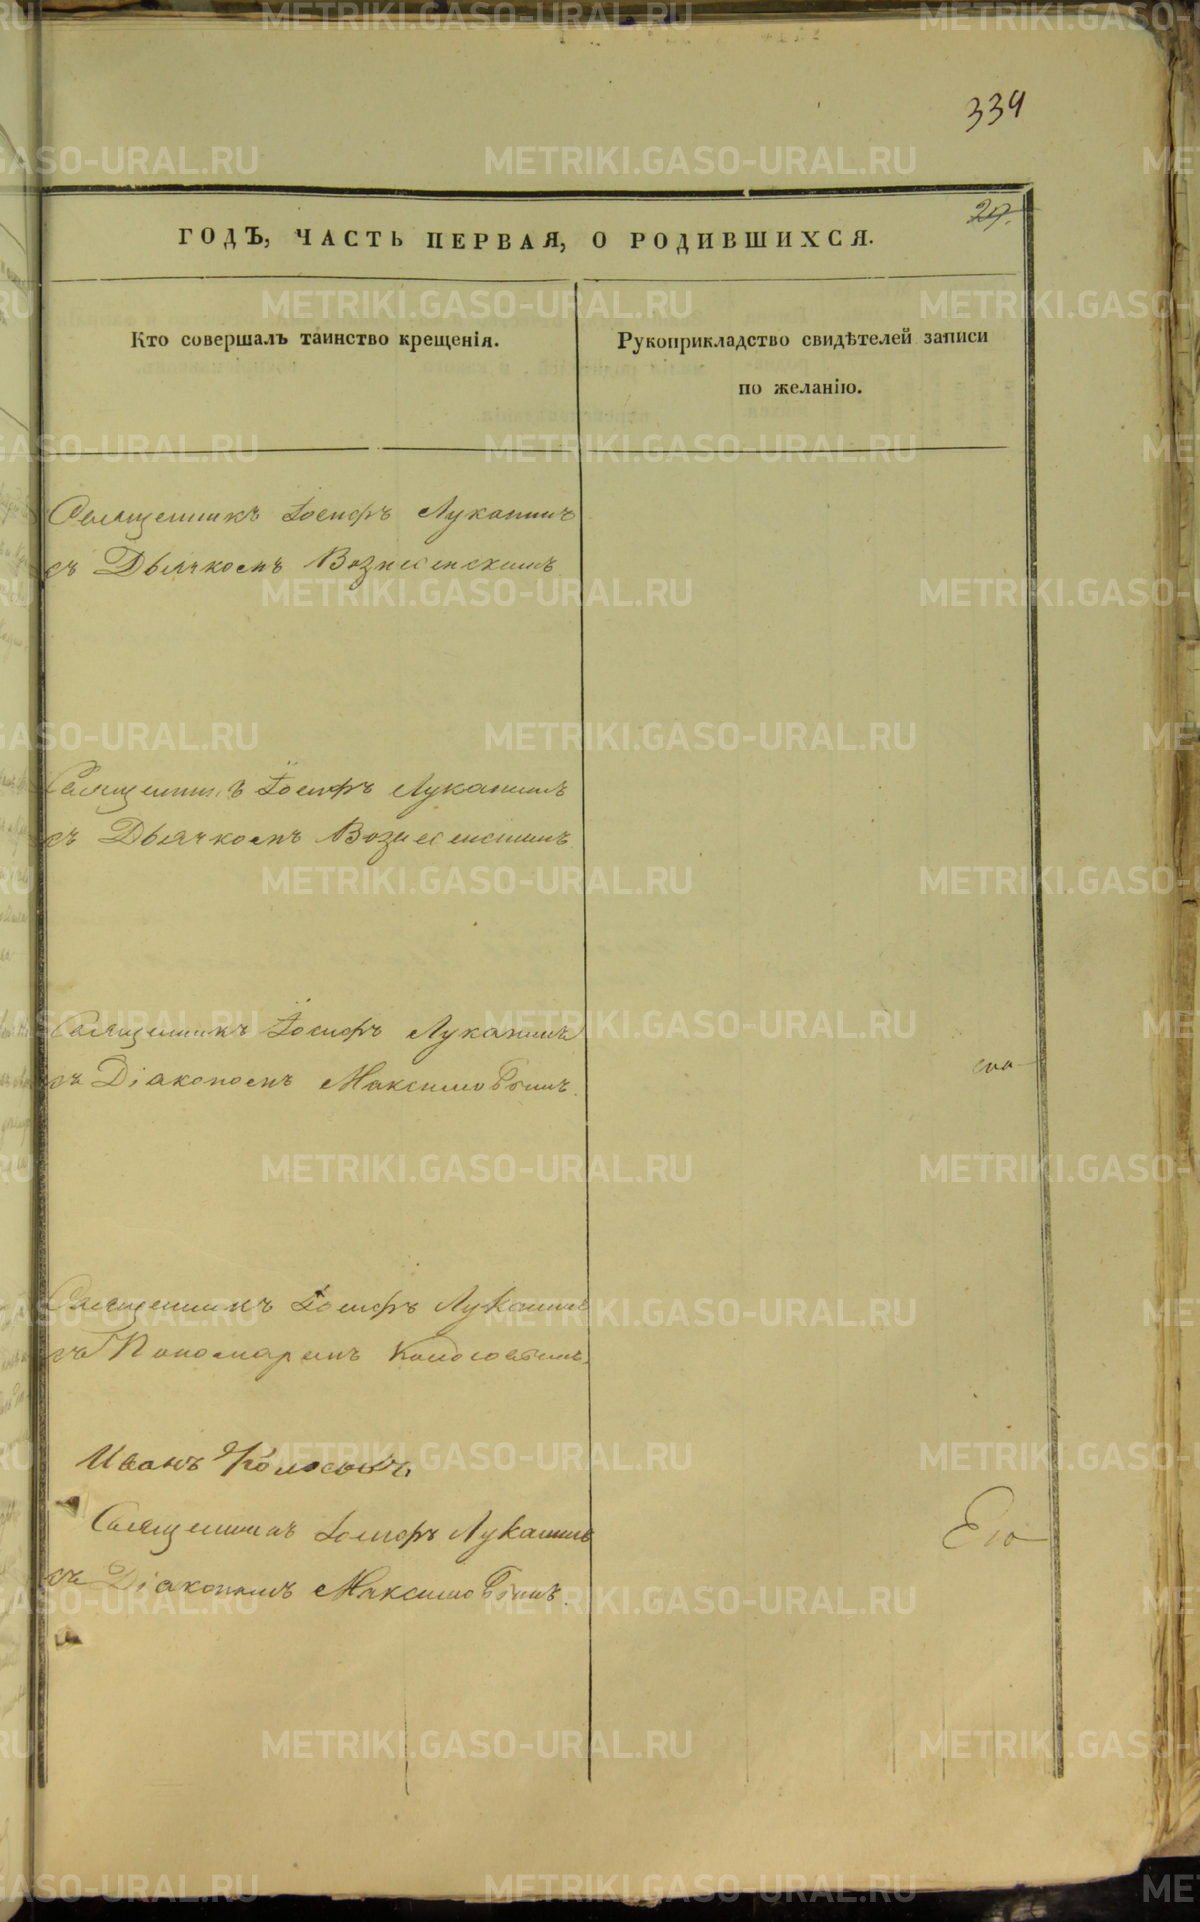 334
27.
ГОДЪ, ЧАСТЬ ПЕРВАЯ, О РОДИВШИХСЯ.
Кто совершалъ таинство крещенія.
Рукоприкладство свидѣтелей записи
по желанію.
Священникъ Іосифъ Луканинъ
съ Дьячкомъ Вознесенскимъ
Священникъ Іосифъ Луканинъ
съ Дьячкомъ Вознесенскимъ
Священникъ Іосифъ Луканинъ
съ Діакономъ Максимовымъ.
Священникъ Іосифъ Луканинъ
съ Пономаремъ Колосовымъ.
Иванъ Колосовъ
Священникъ Іосифъ Луканинъ
съ Діакономъ Максимовымъ.
METRIKI.GASO-URAL.RU